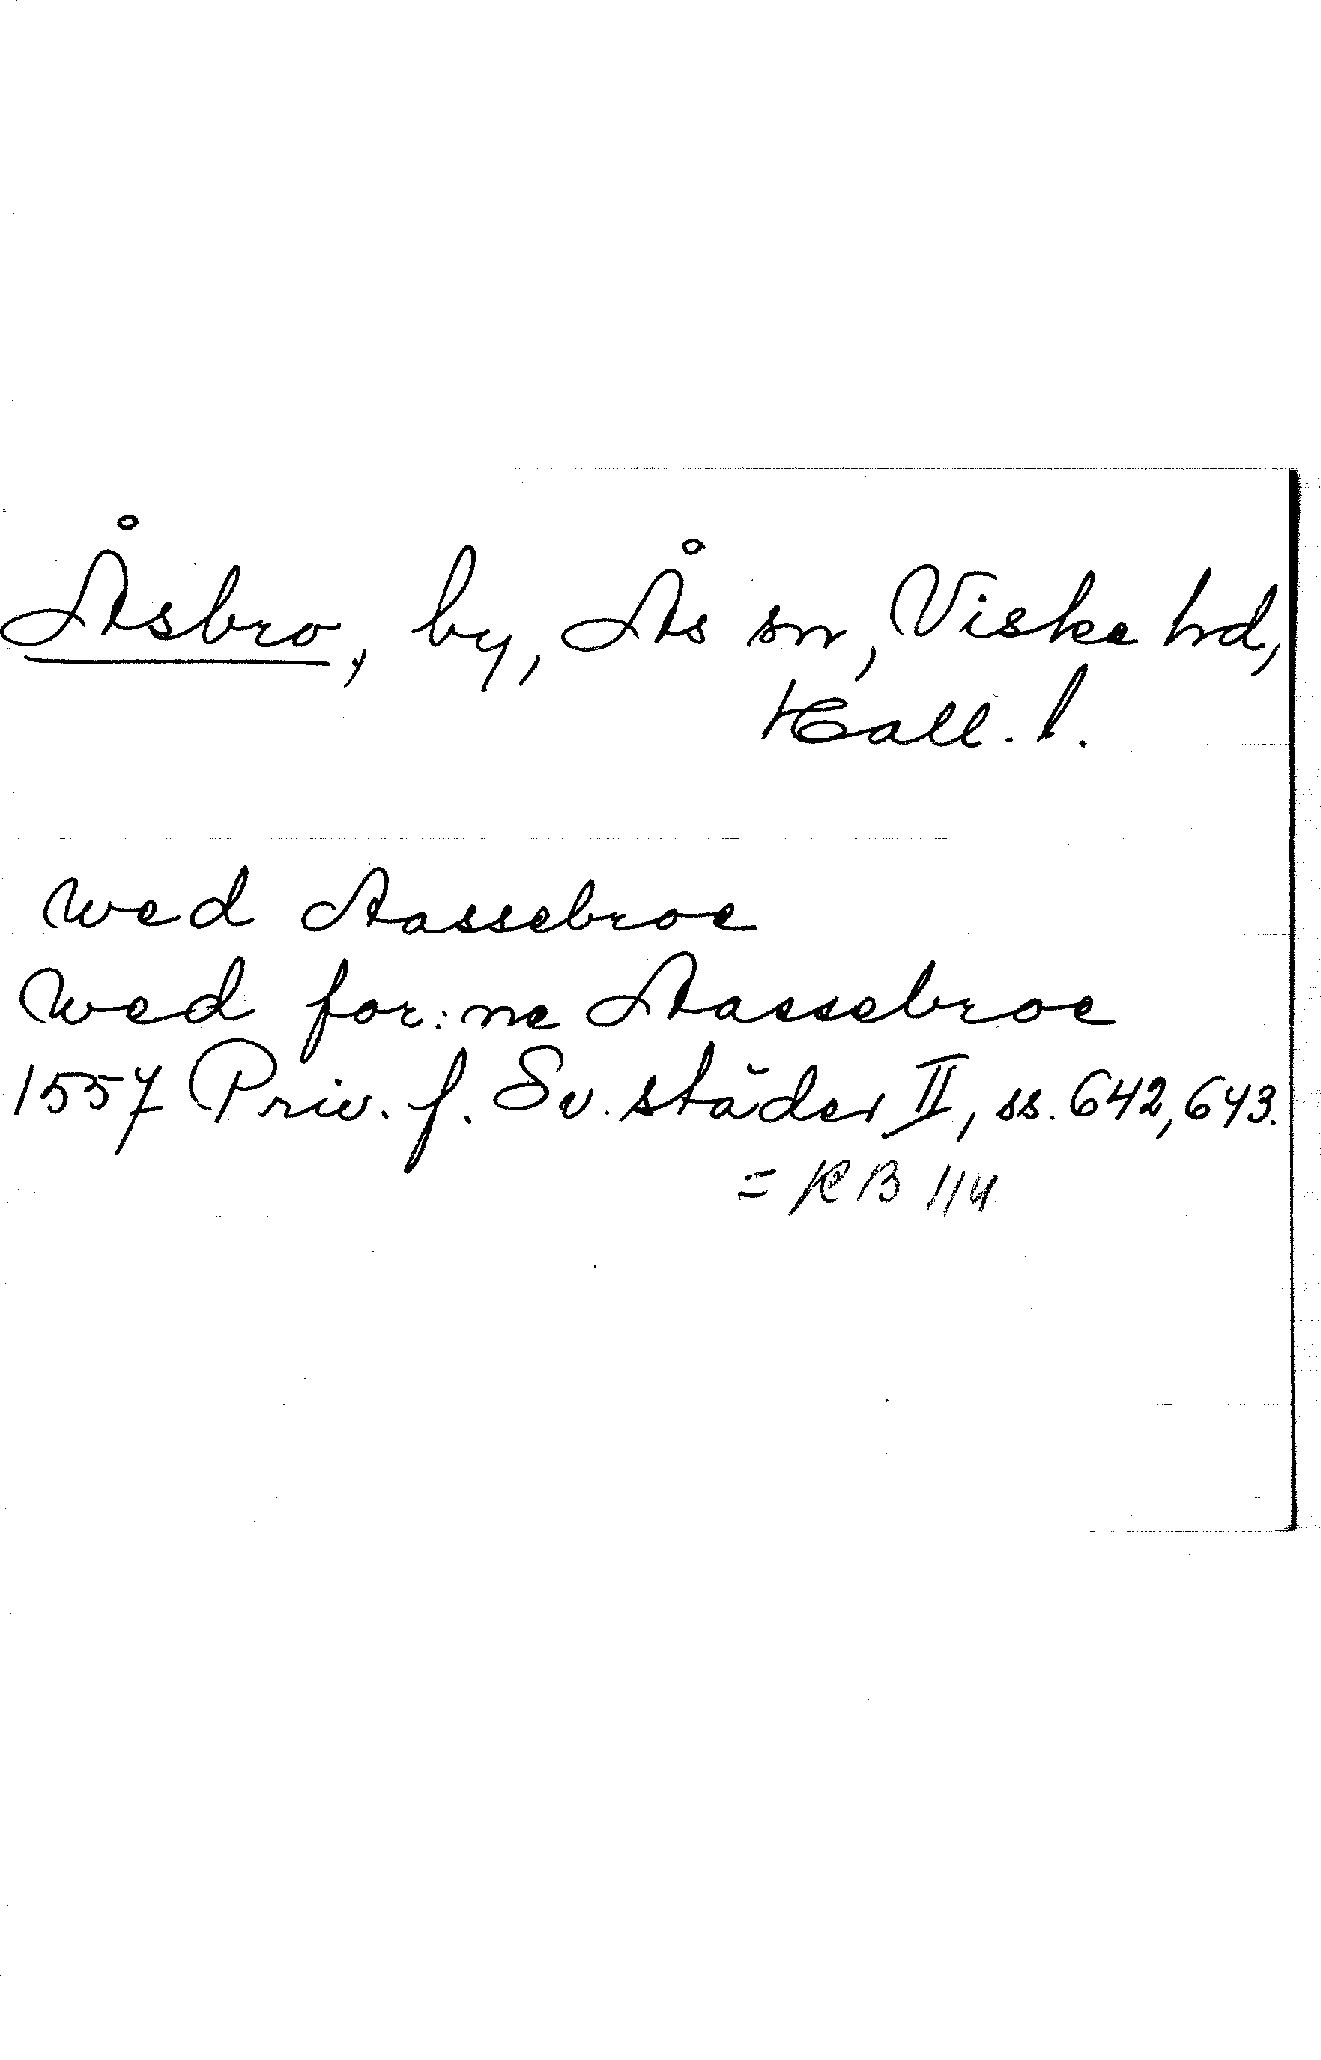 Åsbro, by, Ås sn, Viske hd,
Hall. l.
wed Aassebroe
wed for:ne Aassebroe
1557 Priv. f. Sv. städer II, ss. 642, 643.
= KB 1/4